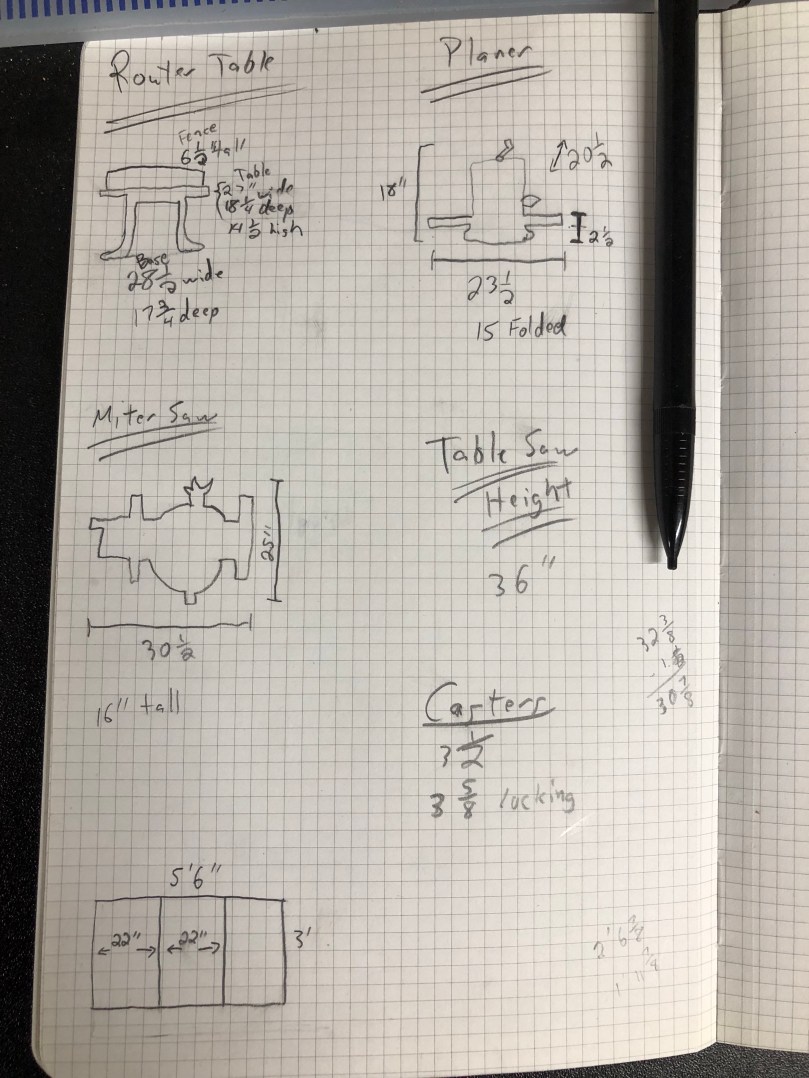 Router Table
Fence
6 1/2" tall
Table
wide
18 1/4 deep
1/2 high
Base
28 1/2 wide
17 3/4 deep
Planer
18"
20 1/2
2 1/2
23 1/2
15 Folded
Miter Saw
25"
30 1/2
16" tall
Table Saw
Height
36"
32 3/8
30 7/8
Casters
3 1/2
3 5/8 locking
5'6"
22" 22"
3'